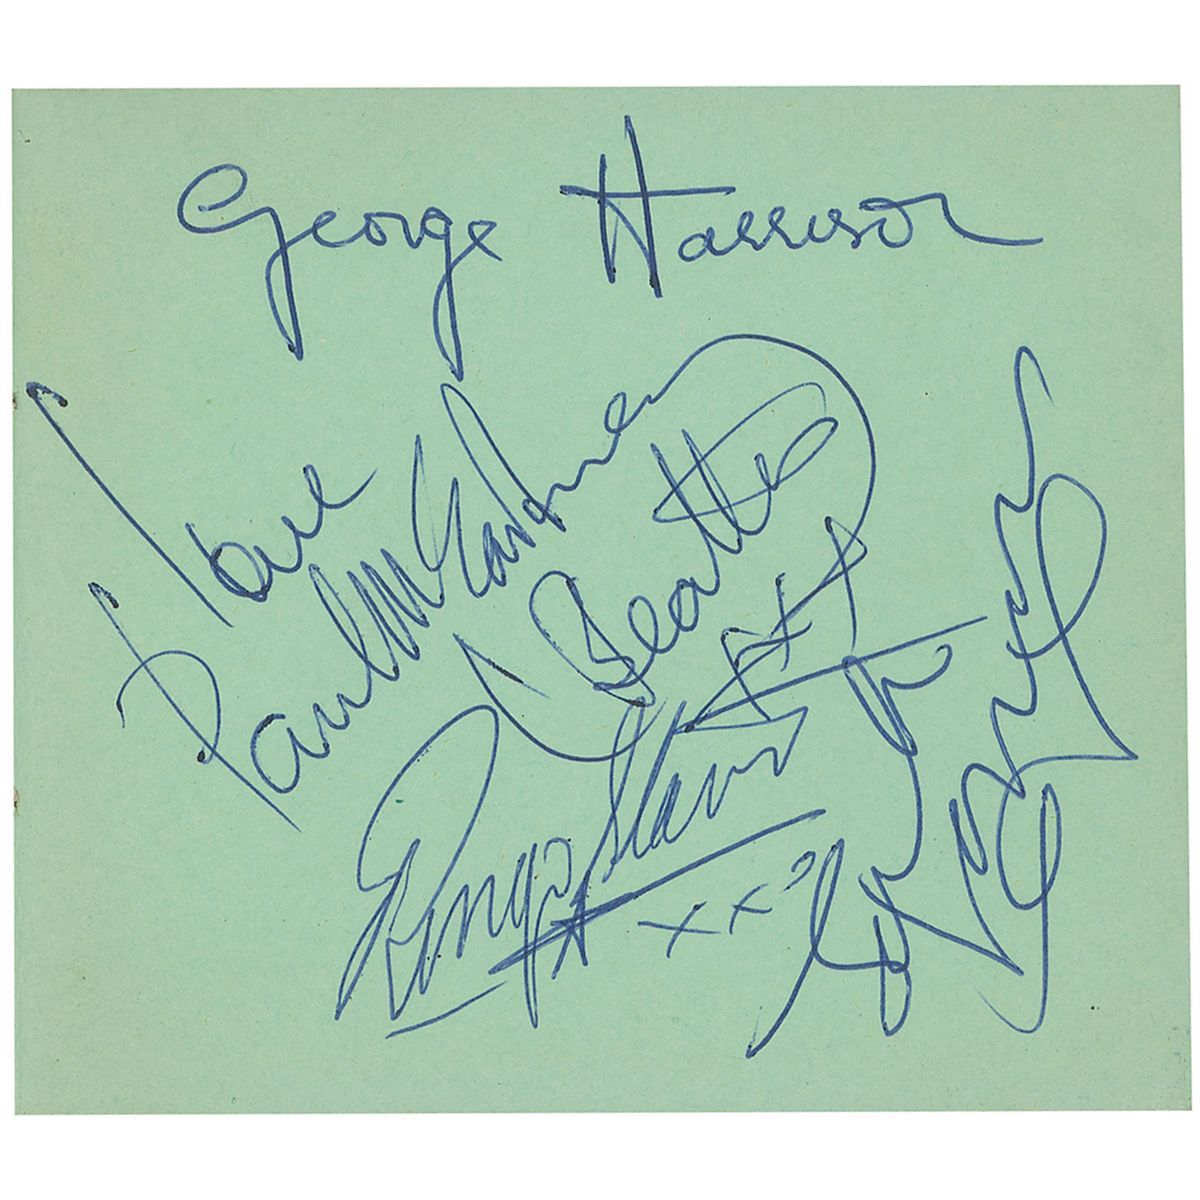 George Harrison
love
Paul McCartney
Beatles
xx
Ringo Starr
xx
John Lennon